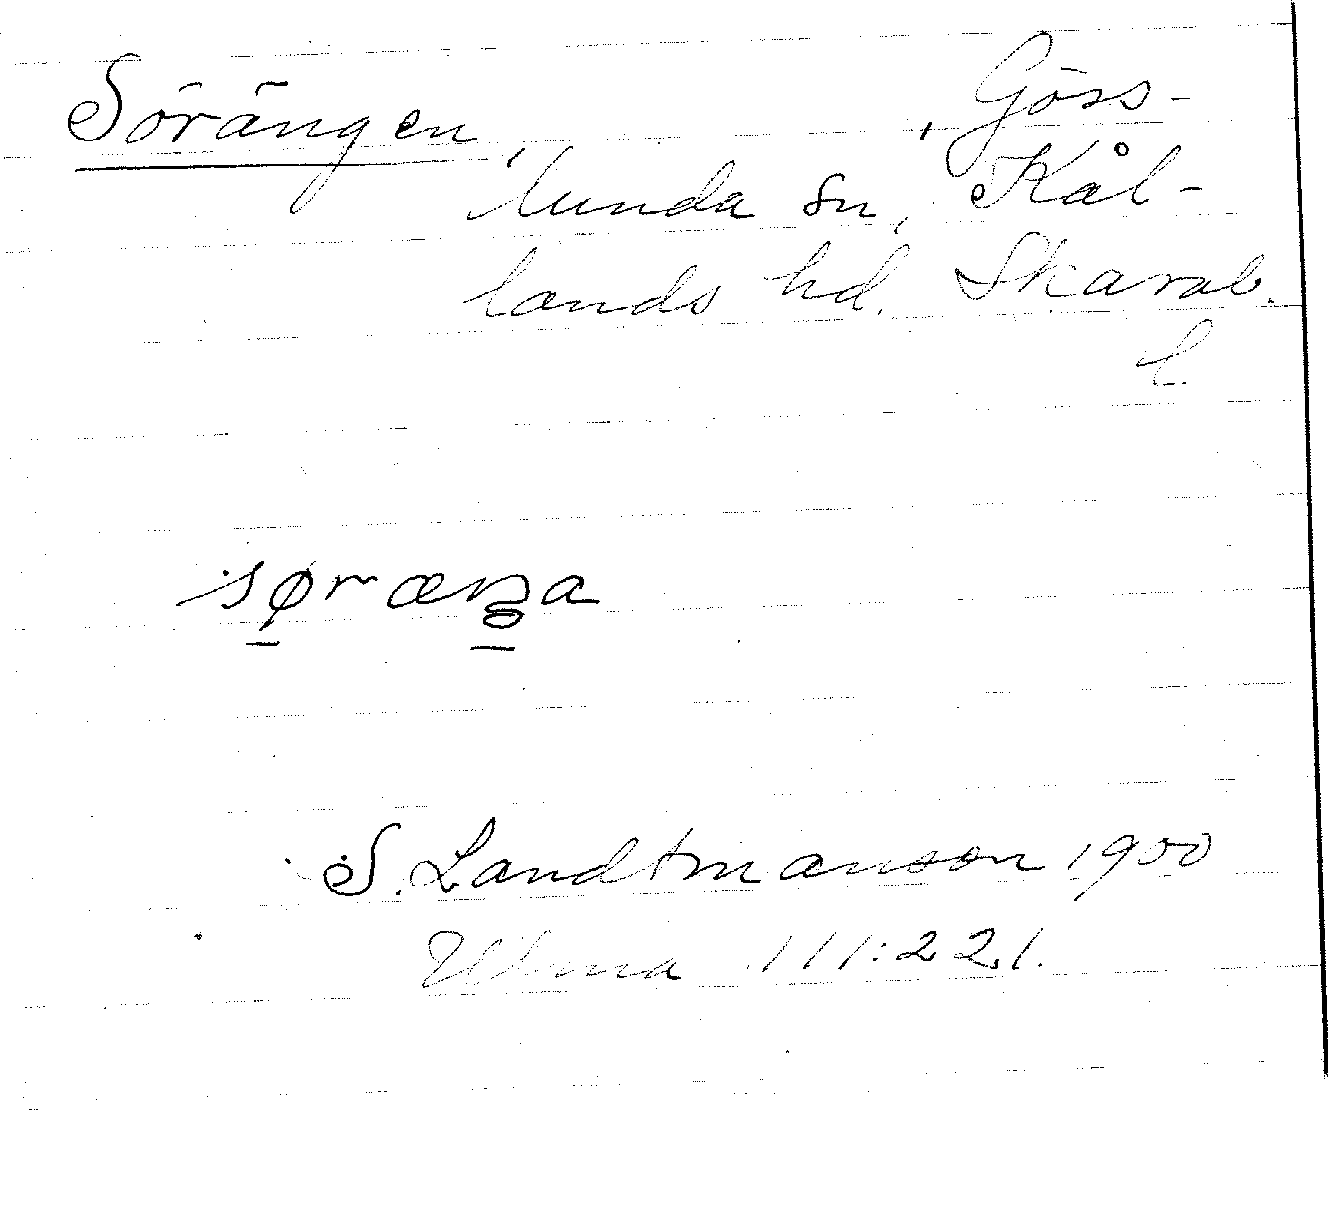 Sörängen, Göss-
lunda sn, Kål-
lands hd. Skarab.
l.
søræŋa
S. Landtmanson 1900
Ulma 111:221.